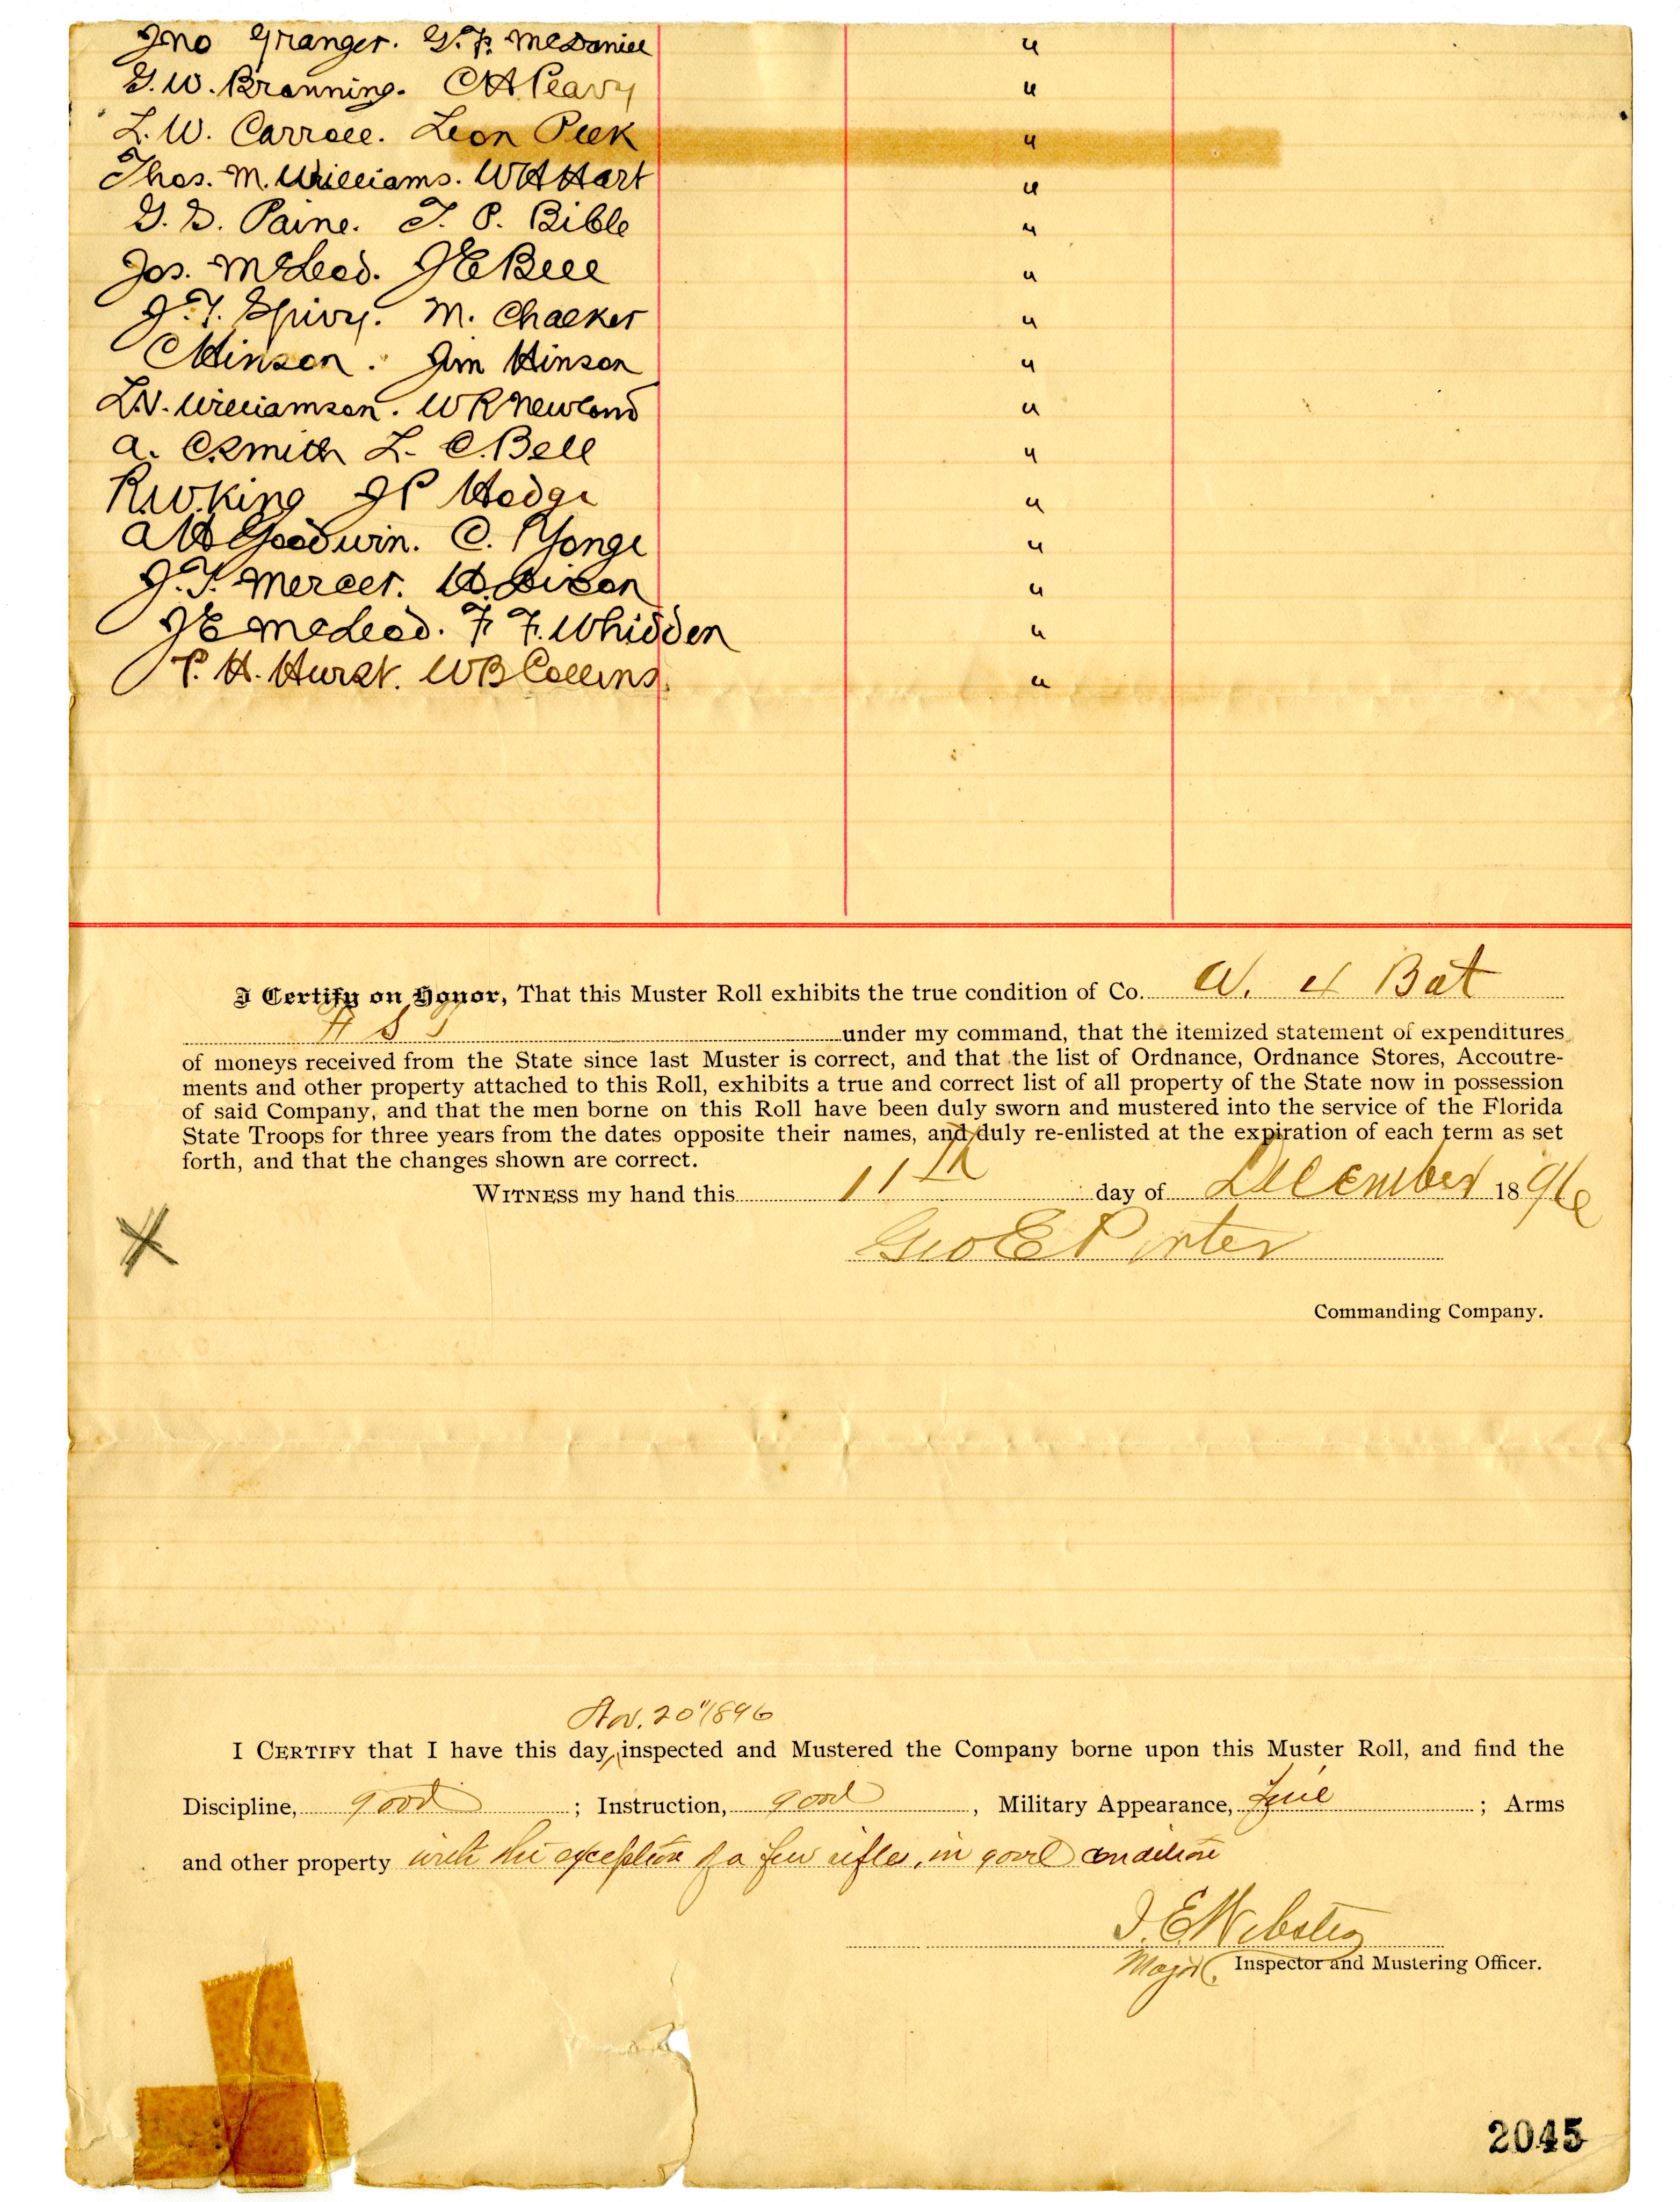 Jno Granger. G. F. McDaniel "
G. W. Branning. C A Peavy "
L. W. Carroll. Leon Peek "
Thos. M. Williams. W H Hart "
G. S. Paine. T. P. Bible "
Jos. McLeod. J E Bell "
J. T. Spivy. M. Chalker "
C Hinson. Jim Hinson "
L. N. Williamson. W R Newland "
A. C. Smith L. C. Bell "
R. W. King J P Hodge "
A H Goodwin. C. Yonge "
J. T. Mercer. H. Dixon "
J E McLeod. F. F. Whidden "
P. H. Hurst. W B Collins "
I Certify on Honor, That this Muster Roll exhibits the true condition of Co. A. 4 Bat
F S T under my command, that the itemized statement of expenditures
of moneys received from the State since last Muster is correct, and that the list of Ordnance, Ordnance Stores, Accoutre-
ments and other property attached to this Roll, exhibits a true and correct list of all property of the State now in possession
of said Company, and that the men borne on this Roll have been duly sworn and mustered into the service of the Florida
State Troops for three years from the dates opposite their names, and duly re-enlisted at the expiration of each term as set
forth, and that the changes shown are correct.
WITNESS my hand this 11th day of December 1896
Geo E Porter
Commanding Company.
Nov. 20" 1896
I CERTIFY that I have this day, inspected and Mustered the Company borne upon this Muster Roll, and find the
Discipline, good ; Instruction, good , Military Appearance, fine ; Arms
and other property with the exception of a few rifles, in good condition
J. E. Webster
Major, Inspector and Mustering Officer.
2045